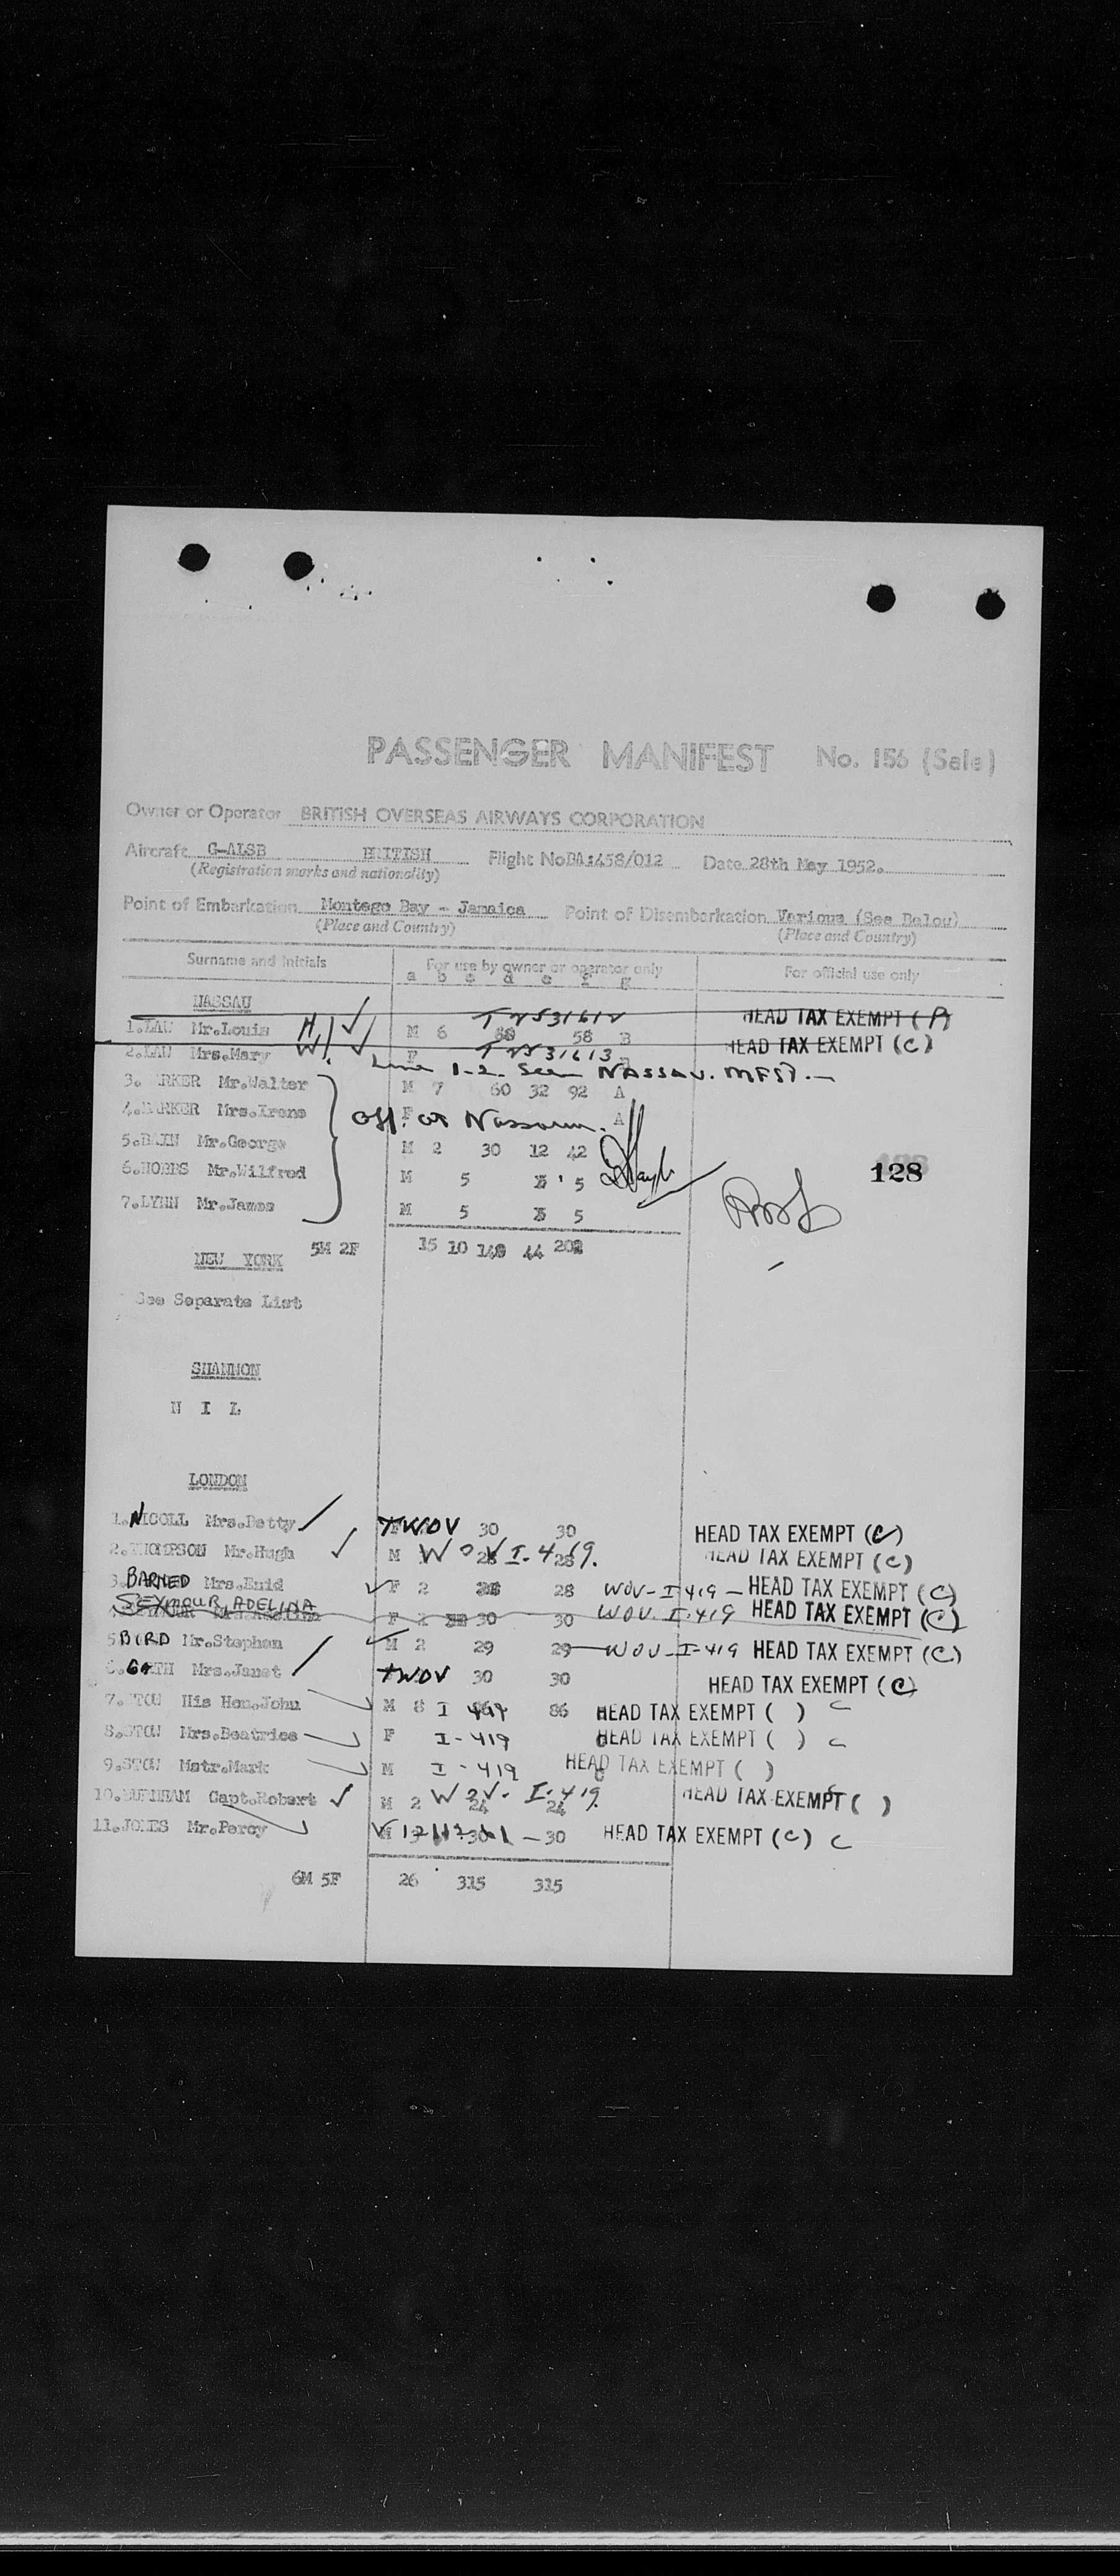 PASSENGER MANIFEST No. 156 (Sale)
Owner or Operator BRITISH OVERSEAS AIRWAYS CORPORATION
Aircraft G-ALSB BRITISH Flight No BA:458/012 Date 28th May 1952.
(Registration marks and nationality)
Point of Embarkation Montego Bay - Jamaica Point of Disembarkation Various (See Below)
(Place and Country) (Place and Country)
Surname and Initials For use by owner or operator only For official use only
a b c d e f g
NASSAU
1.LAW Mr.Louis H M 6 58 B HEAD TAX EXEMPT (P)
2.LAW Mrs.Mary W F HEAD TAX EXEMPT (C)
Line 1-2. Seen NASSAU. MFST.
3. ARKER Mr.Walter M 7 60 32 92 A
4. ARKER Mrs.Irene F A
Off. at Nassau.
5.BAIN Mr.George M 2 30 12 42
6.HOBBS Mr.Wilfred M 5 5
7.LYNN Mr.James M 5 5
128
5M 2F 15 10 148 44 202
NEW YORK
See Separate List
SHANNON
N I L
LONDON
1.NICOLL Mrs.Betty TWOV 30 30 HEAD TAX EXEMPT (C)
2.THOMPSON Mr.Hugh M WOV I.419. 28 HEAD TAX EXEMPT (C)
3.BARNED Mrs.Enid F 2 28 28 WOV-I419 - HEAD TAX EXEMPT (C)
SEYMOUR, ADELINA F 2 30 30 WOV. I.419 HEAD TAX EXEMPT (C)
5.BIRD Mr.Stephen M 2 29 29 WOV-I-419 HEAD TAX EXEMPT (C)
6. Mrs.Janet TWOV 30 30 HEAD TAX EXEMPT (C)
7.STOW His Hon.John M 8 I 419 86 HEAD TAX EXEMPT ( ) C
8.STOW Mrs.Beatrice F I-419 HEAD TAX EXEMPT ( ) C
9.STOW Mstr.Mark M I-419 HEAD TAX EXEMPT ( )
10.BURNHAM Capt.Robert M 2 WOV- I.419. 24 24 HEAD TAX EXEMPT ( )
11.JONES Mr.Percy 30 HEAD TAX EXEMPT (C) C
6M 5F 26 315 315